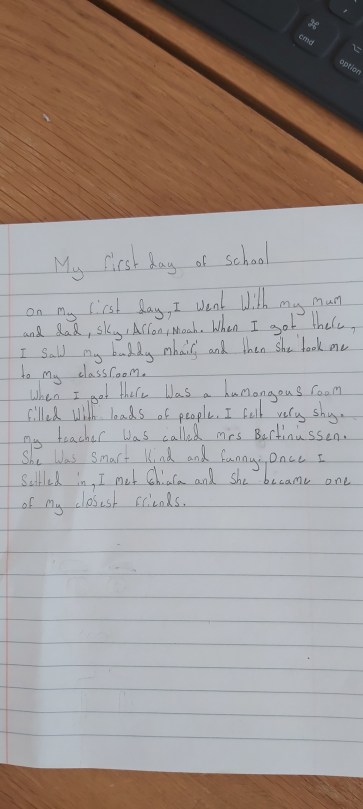 cmd
option
My first day of school
on my first day, I went with my mum
and dad, sky, Arron, Noah. When I got there,
I saw my buddy mhairi and then she took me
to my classroom.
When I got there was a humongous room
filled with loads of people. I felt very shy.
my teacher was called mrs Bertinussen.
She was smart kind and funny. Once I
settled in, I met Chiara and she became one
of my closest friends.